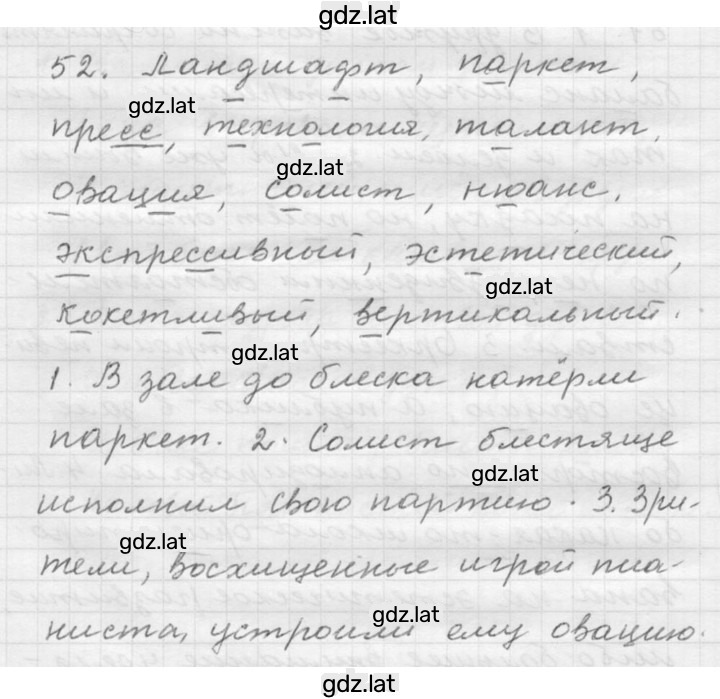 gdz.lat
52. Ландшафт, паркет,
gdz.lat
пресс, технология, талант,
gdz.lat
овация, солист, нюанс.
экспрессивный, эстетический,
gdz.lat
кокетливый, вертикальный.
gdz.lat
1. В зале до блеска натёрли
паркет. 2. Солист блестяще
gdz.lat
исполнил свою партию. 3. Зри-
gdz.lat
тели, восхищенные игрой пиа-
gdz.lat
ниста, устроили ему овацию.
gdz.lat